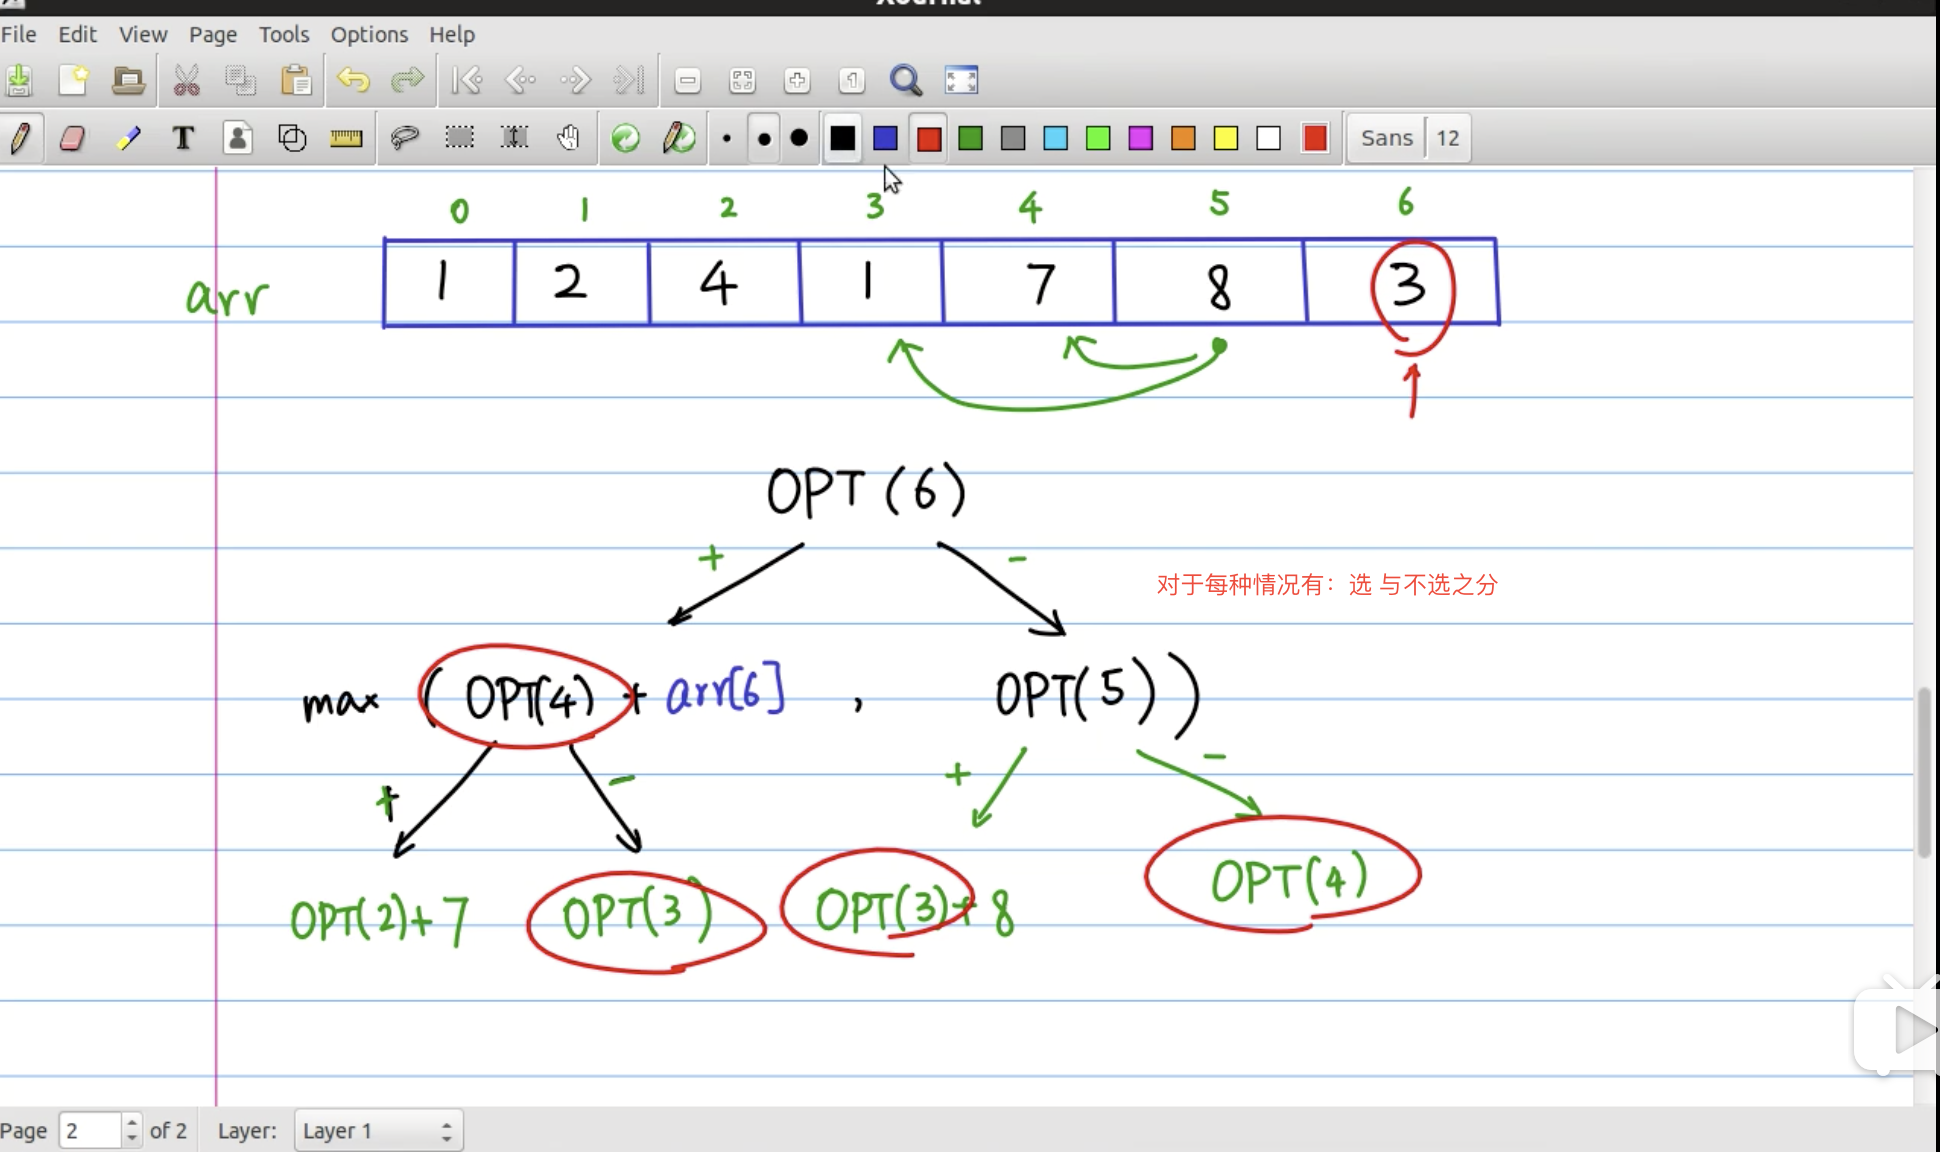 Xournal
File Edit View Page Tools Options Help
T Sans 12
0 1 2 3 4 5 6
arr 1 2 4 1 7 8 3
OPT(6)
+ -
对于每种情况有：选 与不选之分
max (OPT(4) + arr[6] , OPT(5))
+ - + -
OPT(2)+7 OPT(3) OPT(3)+8 OPT(4)
Page 2 of 2 Layer: Layer 1